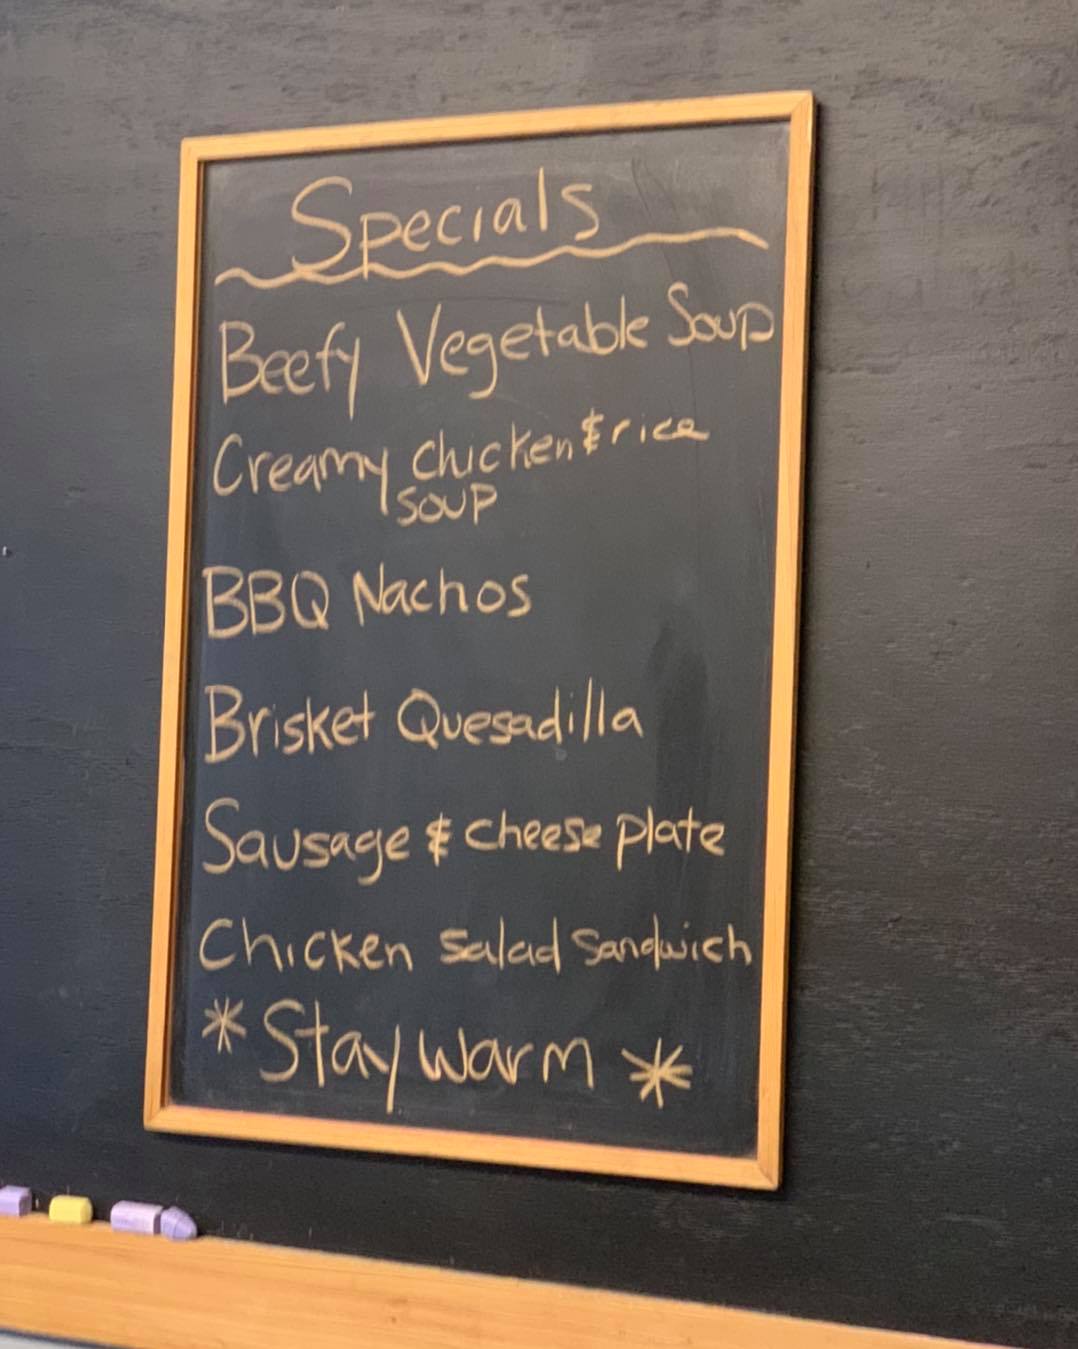 Specials
Beefy Vegetable Soup
Creamy Chicken & rice
soup
BBQ Nachos
Brisket Quesadilla
Sausage & cheese plate
Chicken salad sandwich
* Stay warm *